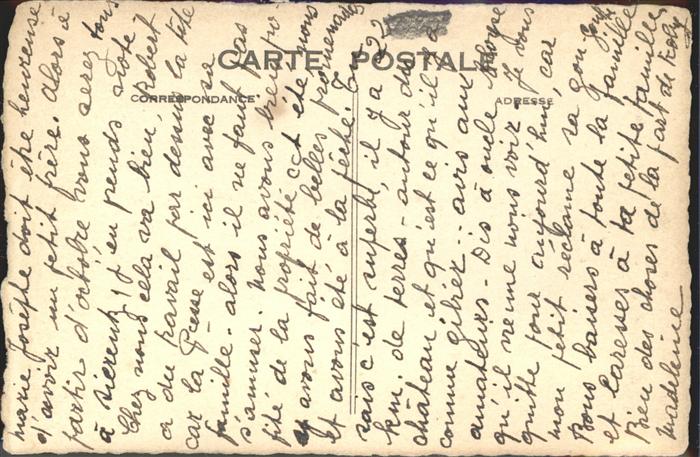 CARTE POSTALE
CORRESPONDANCE
ADRESSE
marie Josèphe doit être heureuse
d'avoir un petit frère. Alors à
partir d'octobre vous serez tous
à Sierentz, j'en prends note
Chez nous cela va bien, Robert
a du travail par dessus la tête
car la Presse est ici avec sa
famille. alors il ne faut pas
s'amuser. Nous avons bien pro
fité de la propriété cet été nous
avons fait de belles promenades
et avons été à la pêche. Tu
sais c'est superbe, il y a 22
km. de terres autour du
château et qu'est ce qu'il y a
comme gibier : avis aux
amateurs. Dis à oncle
qu'il vienne nous voir. Je vous
quitte pour aujourd'hui, car
mon petit réclame sa
Bons baisers à toute la famille
et caresses à ta petite famille.
Bien des choses de la part de
Madeleine